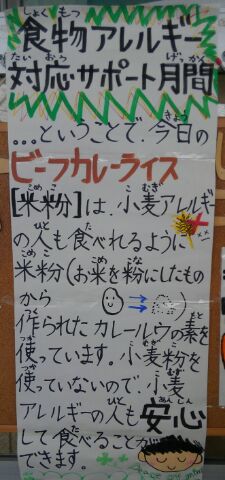 食物アレルギー
対応・サポート月間
…ということで、今日の
ビーフカレーライス
[米粉]は、小麦アレルギー
の人も食べれるように
米粉(お米を粉にしたもの
から
作られたカレールウの素を
使っています。小麦粉を
使っていないので、小麦
アレルギーの人も安心
して食べることが
できます。